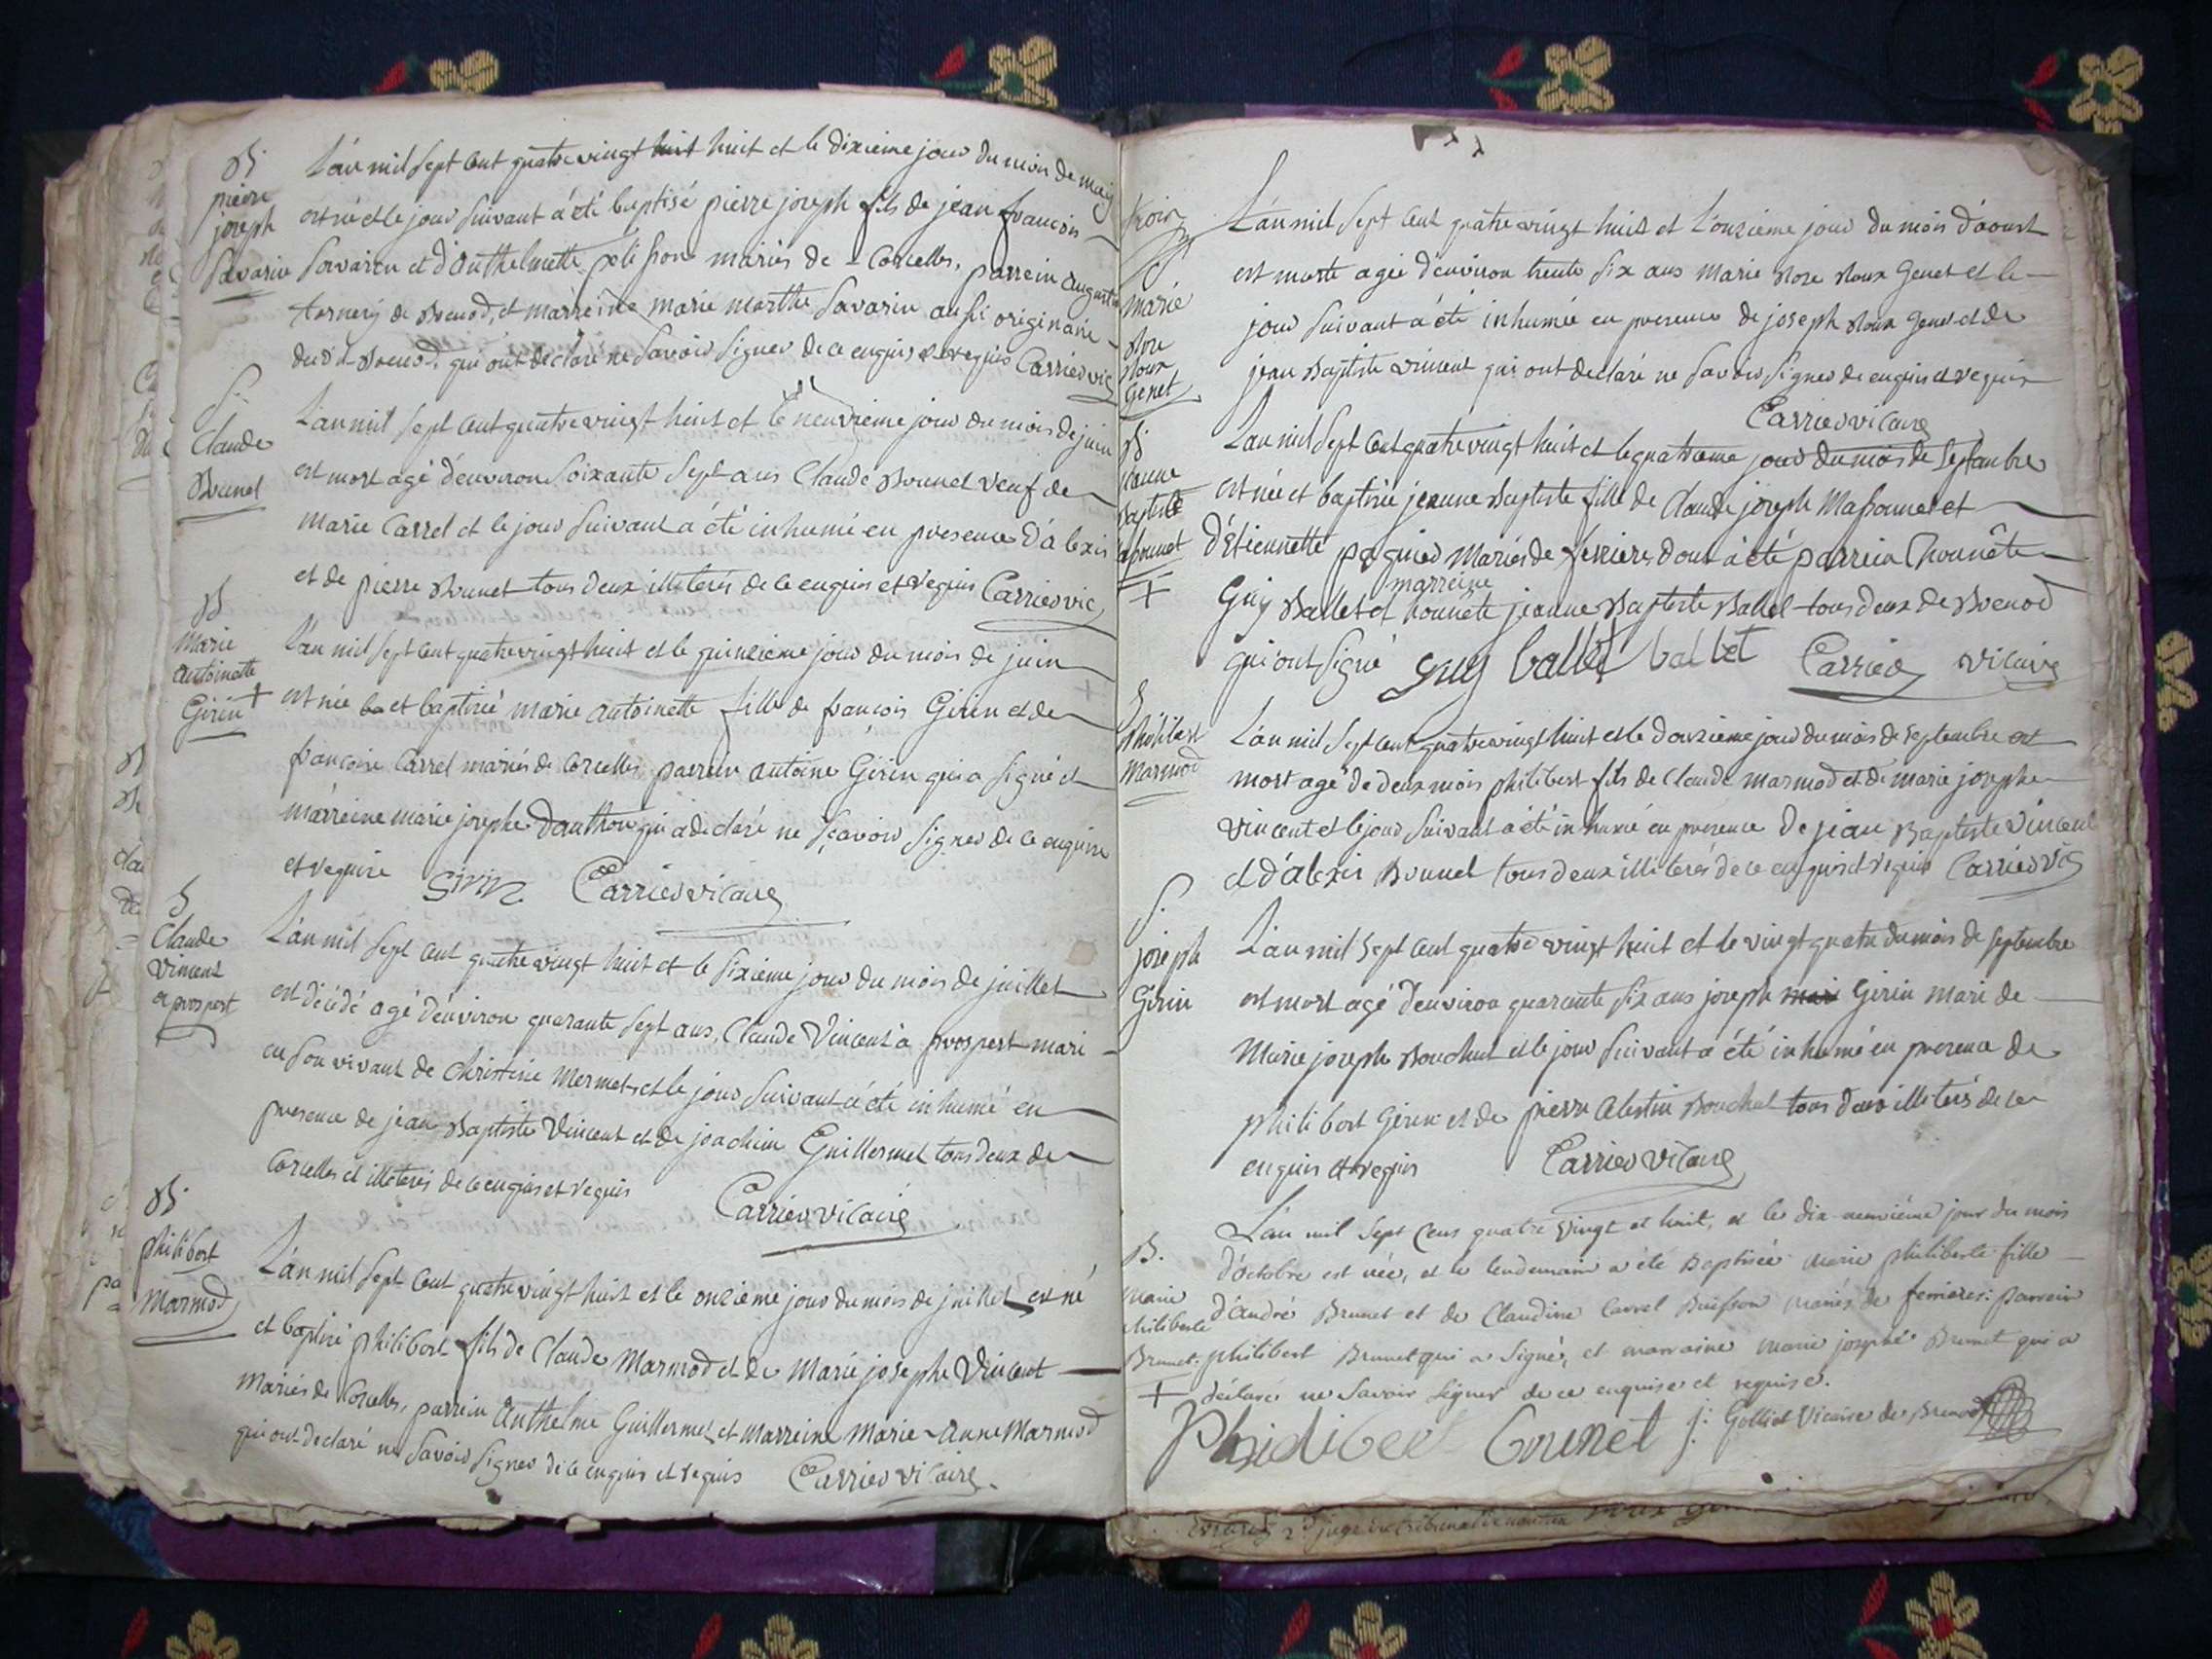 B.
pierre
joseph
Savarin
L'an mil sept cent quatre vingt huit et le dixieme jour du mois de may
est né et le jour suivant a été baptisé pierre joseph fils de jean francois
Savarin et d'anthelmette mariés de Corcelles, parrein augustin
de Brenod, et marreine marie marthe Savarin aussi originaire
dud. Brenod, qui ont declaré ne savoir signer de ce enquis et requis Carrier vic
S.
Claude
Brunet
L'an mil sept cent quatre vingt huit et le neuvieme jour du mois de juin
est mort agé d'environ soixante sept ans Claude Brunet veuf de
marie Carrel et le jour suivant a été inhumé en presence d'alexis
et de pierre Brunet tous deux illiterés de ce enquis et requis Carrier vic
B
Marie
antoinette
Girin +
L'an mil sept cent quatre vingt huit et le quinzieme jour du mois de juin
est née et baptisée marie antoinette fille de francois Girin et de
francoise Carrel mariés de Corcelles, parrein antoine Girin qui a signé et
marreine marie josephe Danthon qui a declaré ne sçavoir signer de ce enquise
et requise Girin Carrier vicaire
S
Claude
Vincent
a prospert
L'an mil sept cent quatre vingt huit et le sixieme jour du mois de juillet
est décédé agé d'environ quarante sept ans, Claude Vincent à prospert mari
en son vivant de Christine Mermet et le jour suivant a été inhumé en
presence de jean Baptiste Vincent et de joachim Guillermet tous deux de
Corcelles et illiterés de ce enquis et requis Carrier vicaire
B.
philibert
Marmod
L'an mil sept cent quatre vingt huit et le onzieme jour du mois de juillet est né
et baptisé philibert fils de Claude Marmod et de Marie josephe Vincent
Mariés de Corcelles, parrein Anthelme Guillermet et marreine Marie Anne Marmod
qui ont declaré ne savoir signer de ce enquis et requis Carrier vicaire
S
Marie
Rose
Roux
Genet
L'an mil sept cent quatre vingt huit et l'onzieme jour du mois d'aoust
est morte agée d'environ trente six ans Marie Rose Roux Genet et le
jour suivant a été inhumée en presence de joseph Roux Genet et de
jean Baptiste Vincent qui ont declaré ne savoir signer de enquis et requis
Carrier vicaire
B
jeanne
Baptiste
+
L'an mil sept cent quatre vingt huit et le quatrieme jour du mois de septembre
est née et baptisée jeanne Baptiste fille de Claude joseph Massonnet et
d'Etiennette paguier Mariés de ferrieres dont a été parrein honnête
Guy Ballet et marreine honnête jeanne Baptiste Ballet tous deux de Brenod
qui ont signé guy ballet ballet Carrier vicaire
S
philibert
Marmod
L'an mil sept cent quatre vingt huit et le douzieme jour du mois de septembre est
mort agé de deux mois philibert fils de Claude marmod et de marie josephe
Vincent et le jour suivant a été inhumé en presence de jean Baptiste Vincent
et d'alexis Brunet tous deux illiterés de ce enquis et requis Carrier vic
S.
joseph
Girin
L'an mil sept cent quatre vingt huit et le vingt quatre du mois de septembre
est mort agé d'environ quarante six ans joseph Girin mari de
Marie joseph Bouchut et le jour suivant a été inhumé en presence de
philibert Girin et de pierre Celestin Bouchut tous deux illiterés de ce
enquis et requis Carrier vicaire
B.
Marie
philiberte
Brunet.
+
L'an mil sept cens quatre vingt et huit, et le dix neuvième jour du mois
d'octobre est née, et le lendemain a été Baptisée marie philiberte fille
d'andré Brunet et de Claudine Carrel Buisson mariés de ferrieres: parrein
philibert Brunet qui a signé, et marraine marie josephe Brunet qui a
déclaré ne savoir signer de ce enquise et requise.
Brunet j: Golliet Vicaire de Brenod